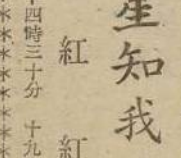 星知我
紅 紅
四時三十分 十九
************